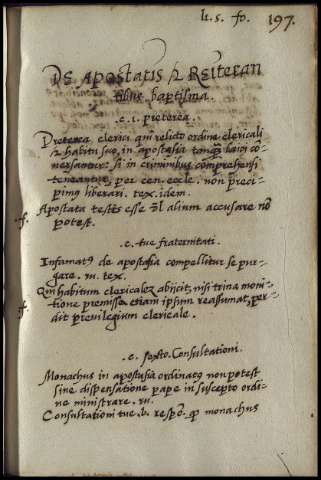 li. 5. fo. 197.
De Apostatis & Reiteran
tibus baptisma.
.c. 1. preterea.
Preterea clerici, qui relicto ordine clericali
& habitu suo, in apostasia tanq̃ laici co-
nersantur: si in criminibus comprehensi
teneantur, per cen. eccle. non preci-
pimus liberari. tex. idem.
Apostata testes esse vl̃ alium accusare nõ
potest.
.c. tue fraternitati.
Infamatꝰ de apostasia compellitur se pur-
gare. in. tex.
Qui habitum clericalez abijcit, nisi trina moni-
tione premissa etiam ipsum reassumat, per-
dit preuilegium clericale.
.c. sexto. Consultationi.
Monachus in apostasia ordinatꝰ non potest
sine dispensatione pape in suscepto ordi-
ne ministrare. in.
Consultationi tue. b. respõ. ꝙ monachus